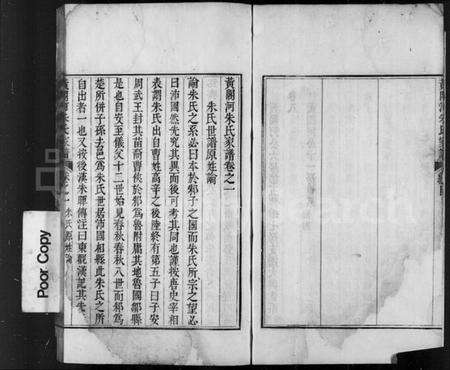 黃關河朱氏家譜卷之一
朱氏世譜原姓論
論朱氏之系必曰本於邾子之國而朱氏所宗之望必
曰沛國然先究其異而後可考其同也謹按唐史宰相
表謂朱氏出自曹姓高辛之後陸終有第五子曰子安
周武王封其苗裔曹俠於邾爲魯附庸其地魯國鄒縣
是也自安至儀父十二世始見春秋春秋八世而邾爲
楚所併子孫去邑爲朱氏世居沛國相縣此朱氏之所
自出者一也又按後漢朱暉傳注曰東觀漢記其先
黃關河朱氏家譜 卷之一 朱氏原姓論
黃關河朱氏家譜
Poor Copy